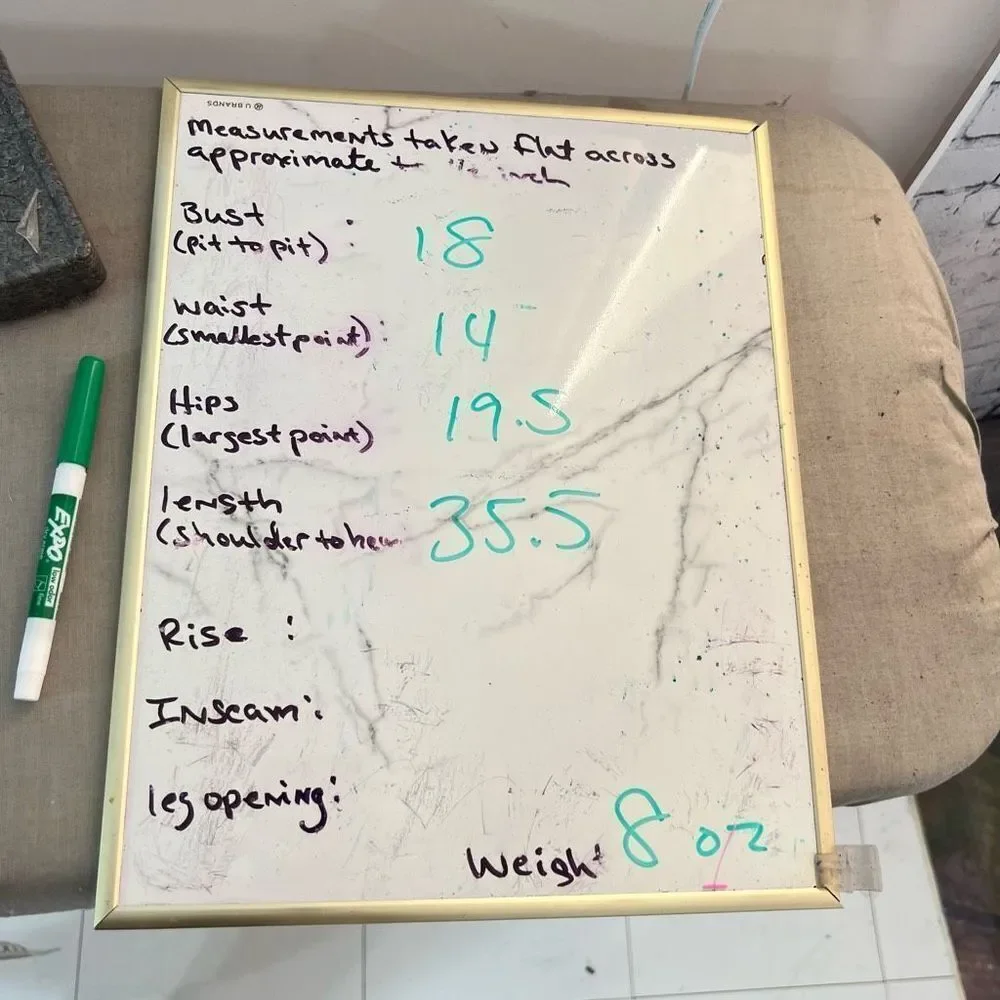 U BRANDS
Measurements taken flat across
approximate + inch
Bust
(pit to pit) : 18
waist
(smallest point) : 14
Hips
(largest point) 19.5
length
(shoulder to hem 35.5
Rise :
Inseam :
leg opening :
Weight 8 oz
EXPO
low odor